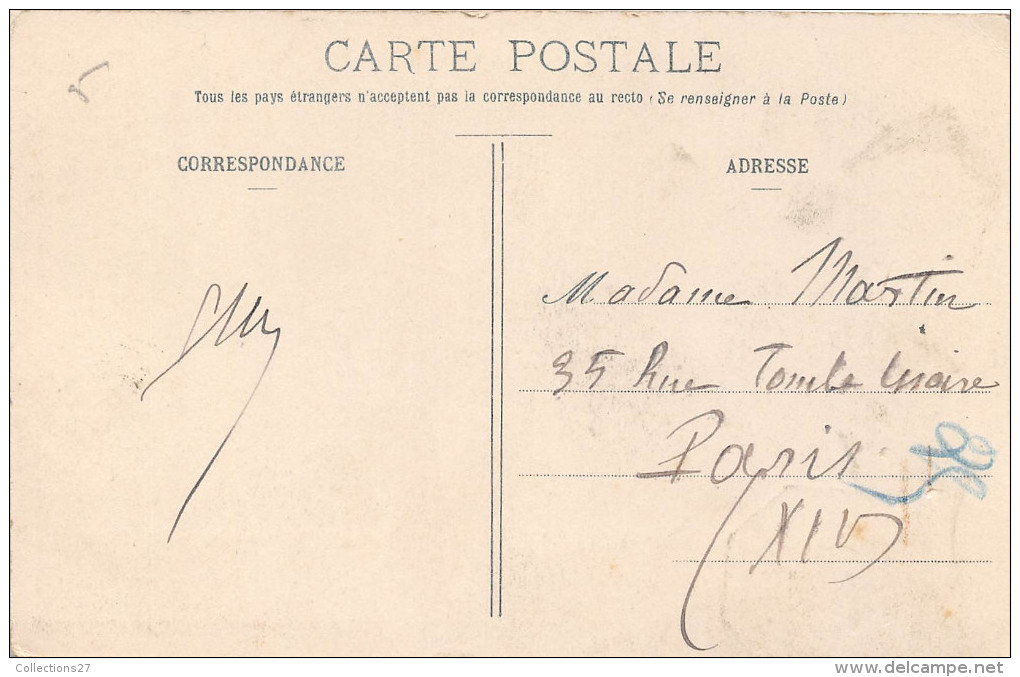 CARTE POSTALE
Tous les pays étrangers n'acceptent pas la correspondance au recto (Se renseigner à la Poste)
CORRESPONDANCE
ADRESSE
Madame Martin
35 Rue Tombe Issoire
Paris
XIV
Collections27
delcampe.net